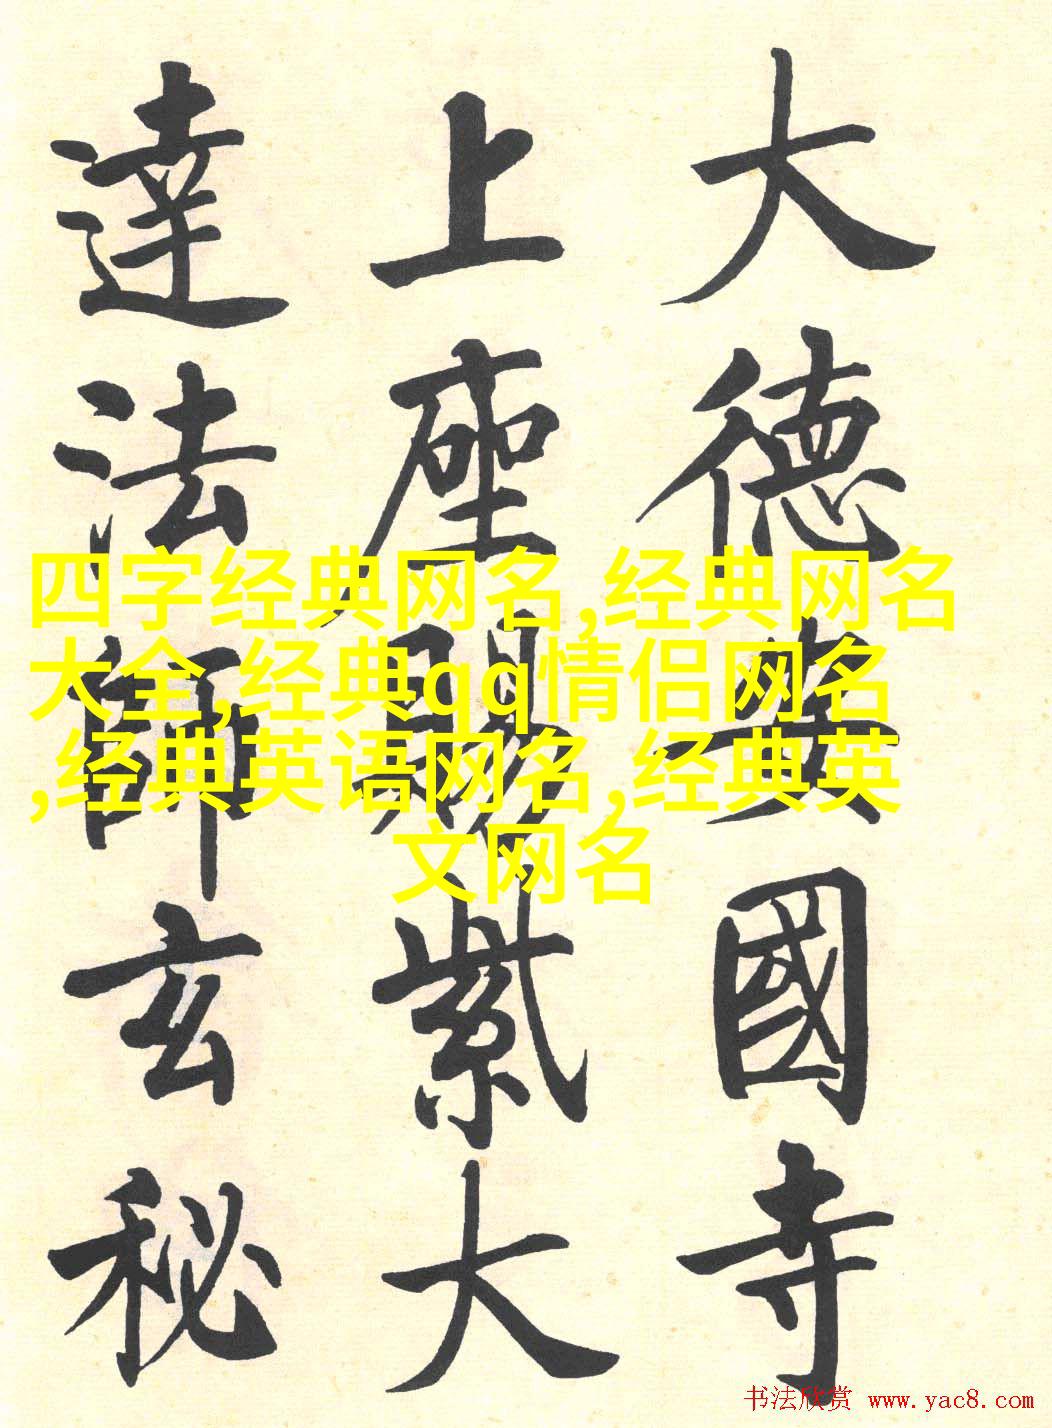 大德安國寺
上座賜紫大
達法師玄秘
四字经典网名,经典网名
大全,经典qq情侣网名
,经典英语网名,经典英
文网名
书法欣赏 www.yac8.com